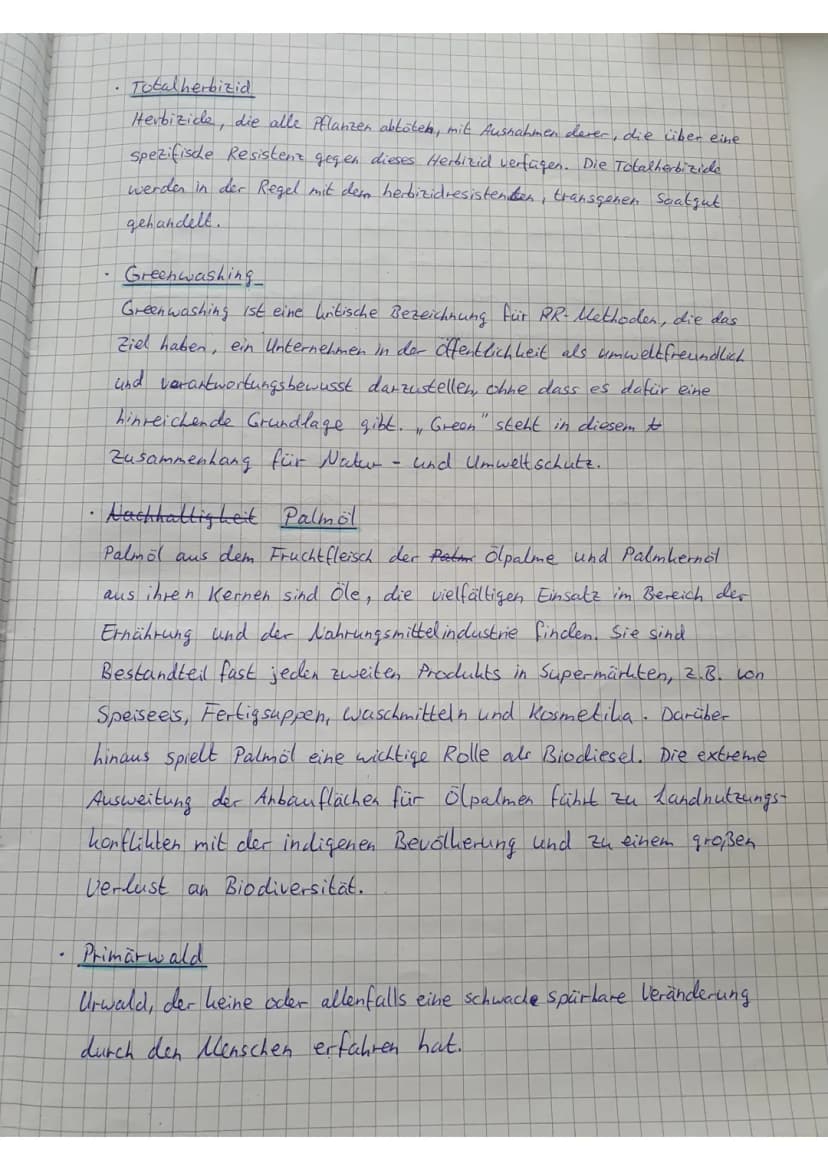 • Totalherbizid
Herbizide, die alle Pflanzen abtöten, mit Ausnahmen derer, die über eine
spezifische Resistenz gegen dieses Herbizid verfügen. Die Totalherbizide
werden in der Regel mit dem herbizidresistenten, transgenen Saatgut
gehandelt.
• Greenwashing
Greenwashing ist eine kritische Bezeichnung für PR-Methoden, die das
Ziel haben, ein Unternehmen in der Öffentlichkeit als umweltfreundlich
und verantwortungsbewusst darzustellen, ohne dass es dafür eine
hinreichende Grundlage gibt. „Green" steht in diesem
Zusammenhang für Natur- und Umweltschutz.
• Nachhaltigkeit Palmöl
Palmöl aus dem Fruchtfleisch der Palm Ölpalme und Palmkernöl
aus ihren Kernen sind Öle, die vielfältigen Einsatz im Bereich der
Ernährung und der Nahrungsmittelindustrie finden. Sie sind
Bestandteil fast jeden zweiten Produkts in Supermärkten, z.B. von
Speiseeis, Fertigsuppen, Waschmitteln und Kosmetika. Darüber
hinaus spielt Palmöl eine wichtige Rolle als Biodiesel. Die extreme
Ausweitung der Anbauflächen für Ölpalmen führt zu Landnutzungs-
konflikten mit der indigenen Bevölkerung und zu einem großen
Verlust an Biodiversität.
• Primärwald
Urwald, der keine oder allenfalls eine schwache spürbare Veränderung
durch den Menschen erfahren hat.